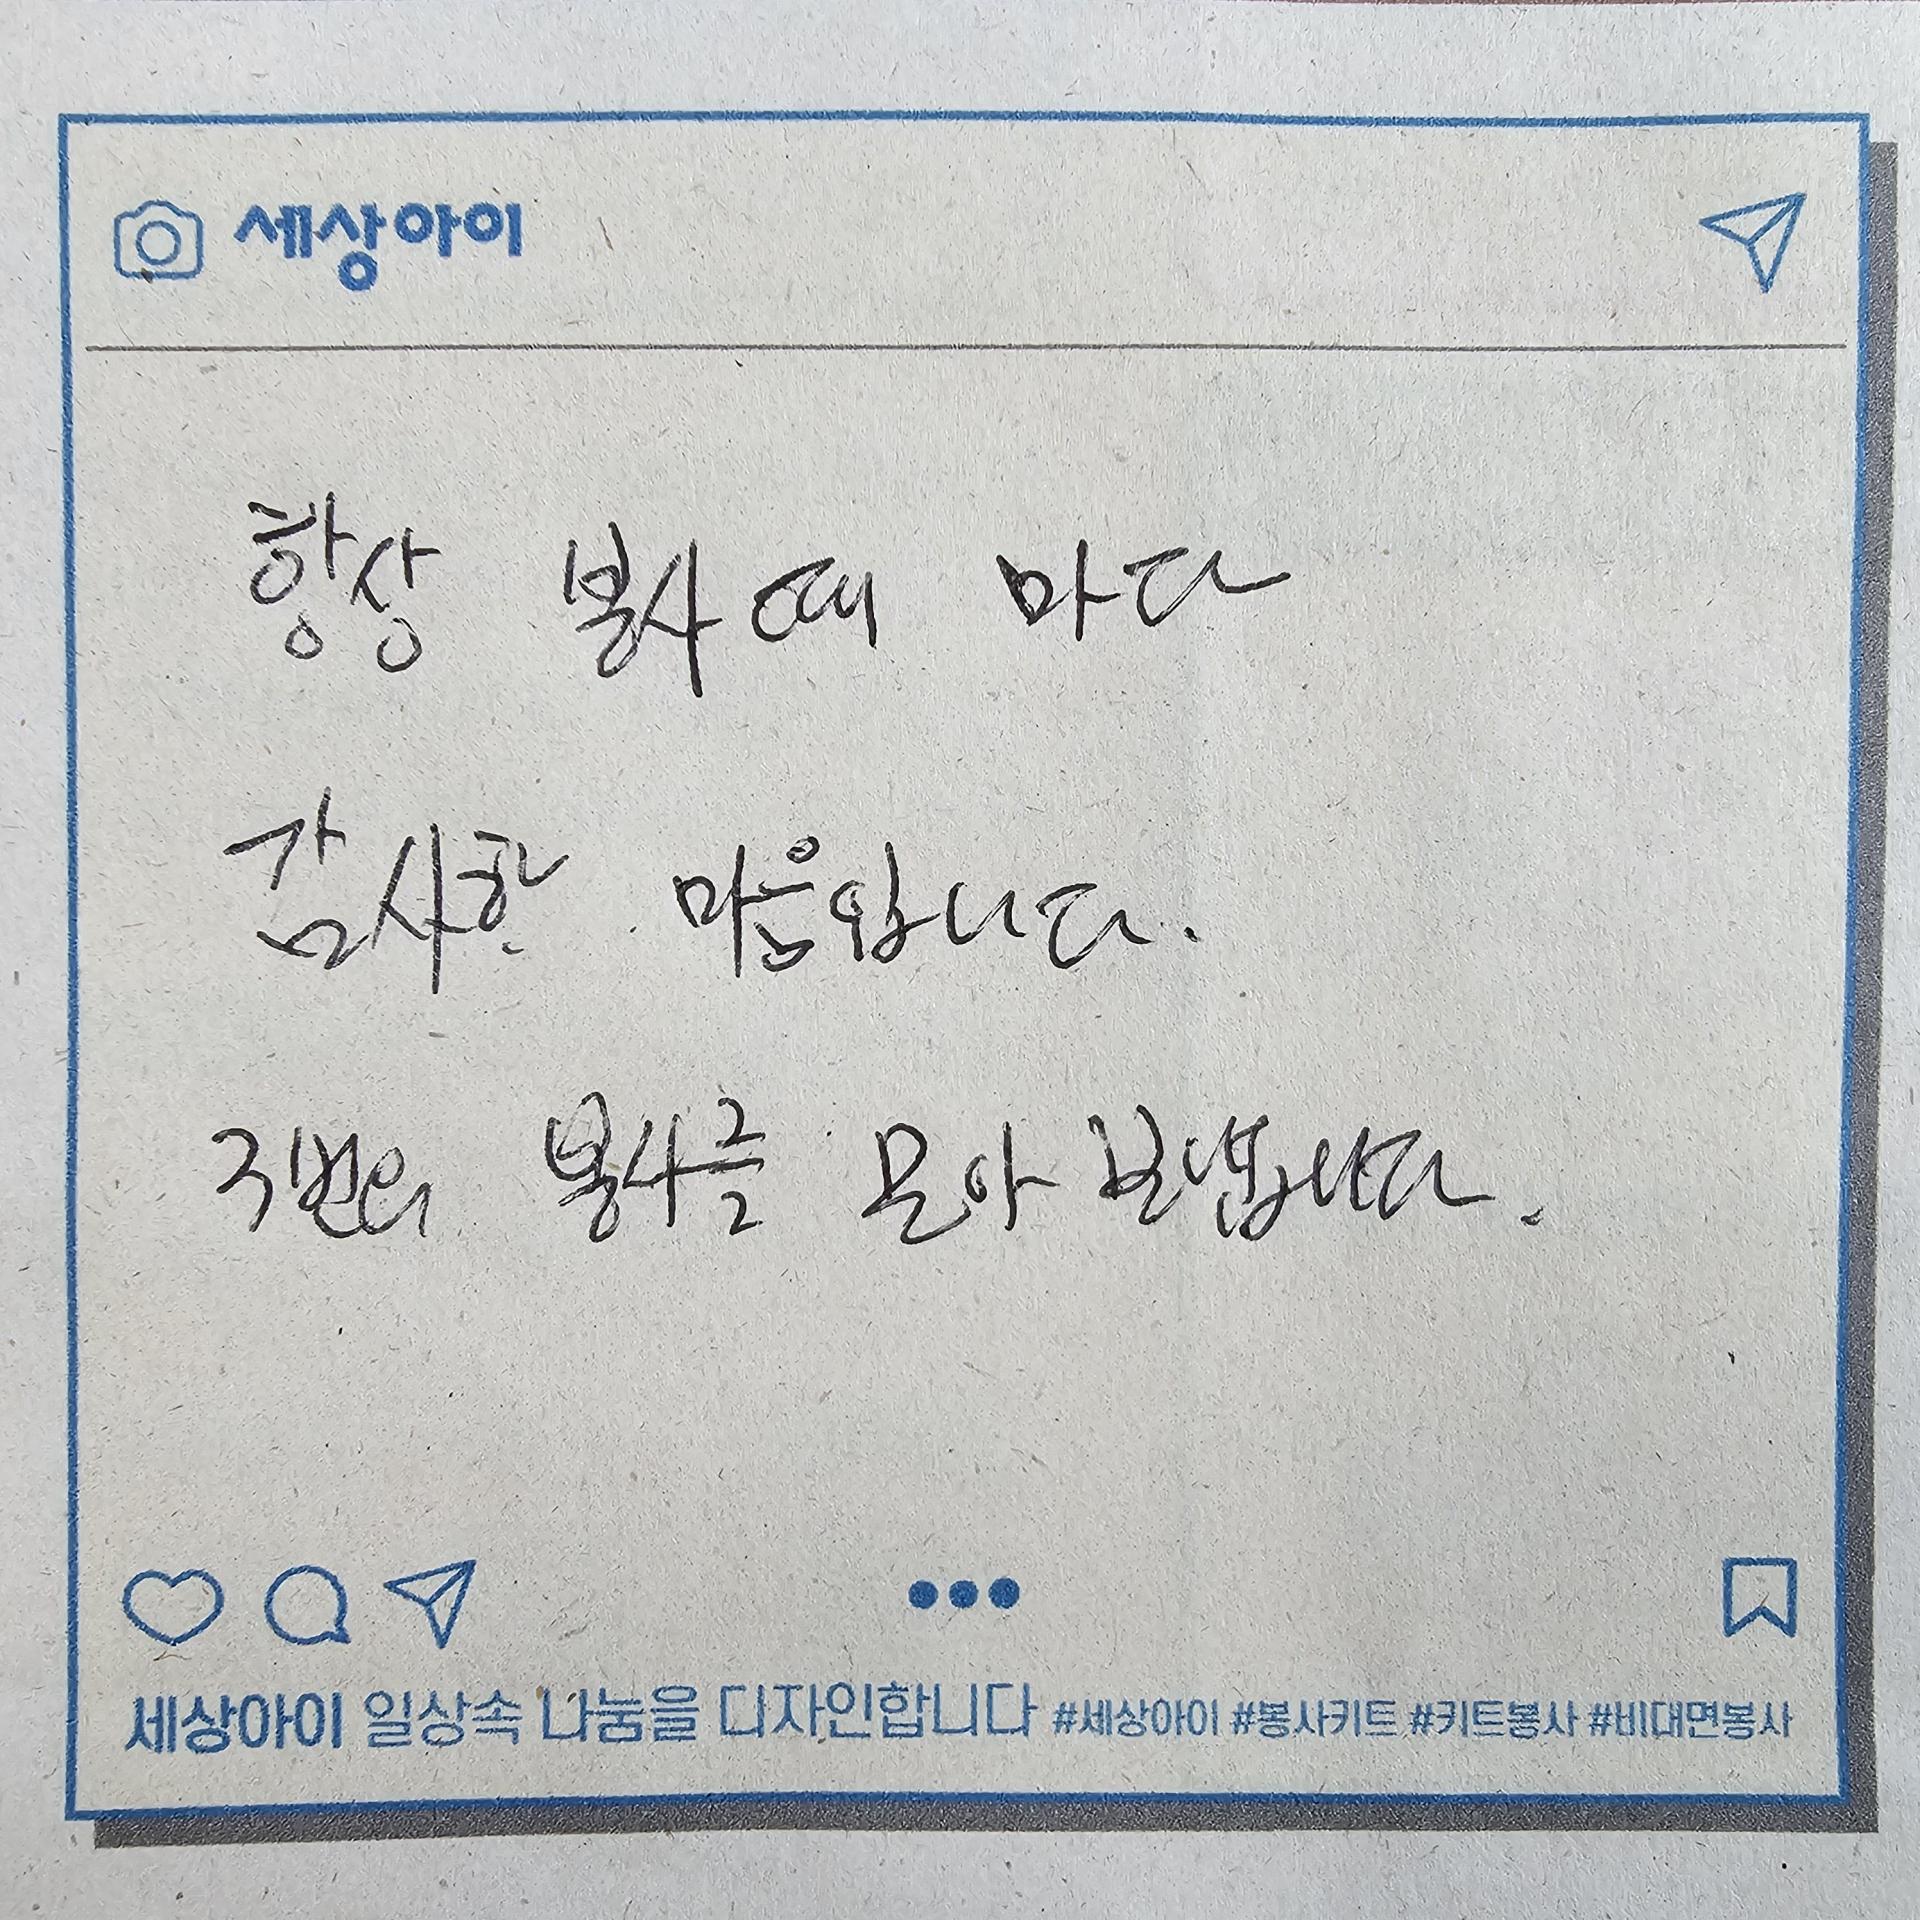 세상아이
항상 봉사 때 마다
감사한 마음입니다.
3번의 봉사를 모아 보냅니다.
세상아이 일상속 나눔을 디자인합니다 #세상아이 #봉사키트 #키트봉사 #비대면봉사